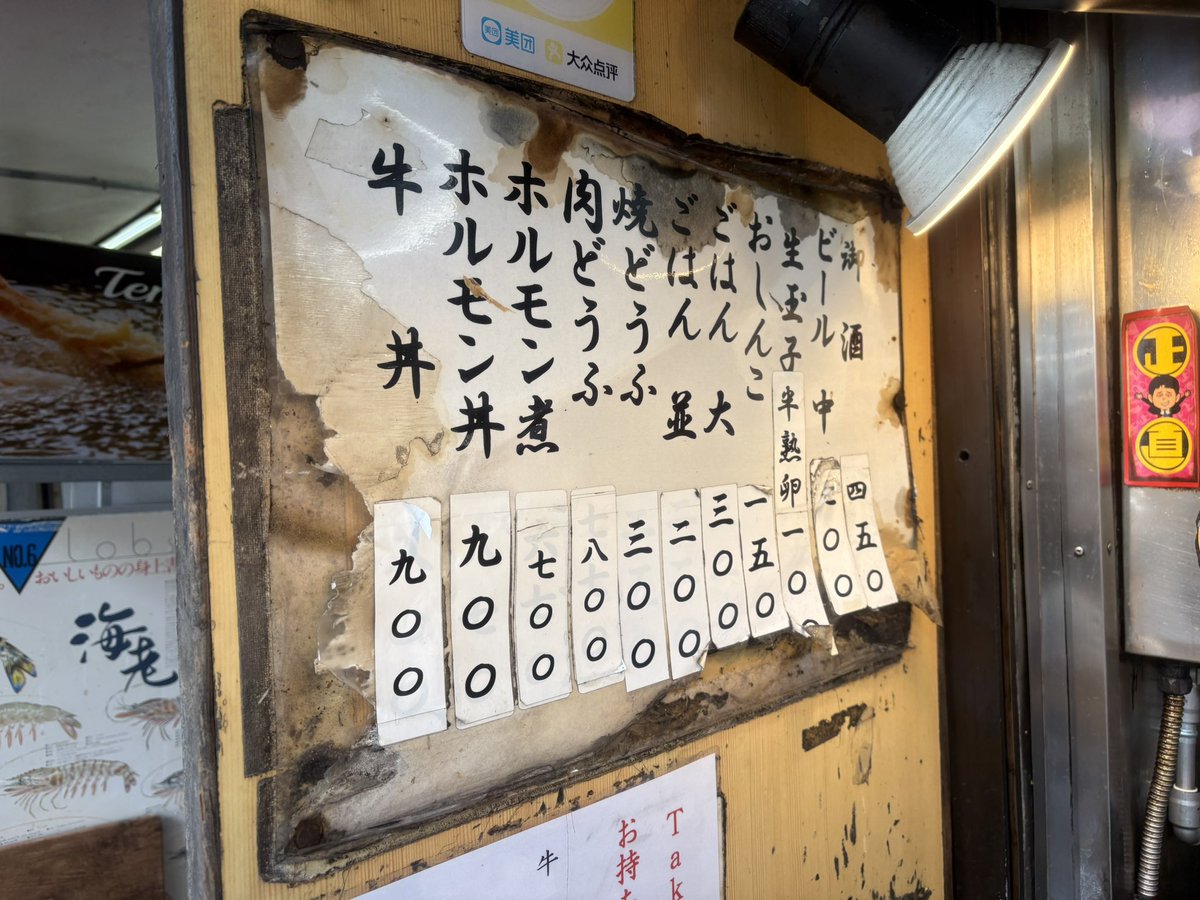 美团 美团 大众点评
御酒 四五〇
ビール 中 〇〇
生玉子 半熟卵 一〇〇
おしんこ 一五〇
ごはん 大 三〇〇
ごはん 並 二〇〇
焼どうふ 三〇〇
肉どうふ 八〇〇
ホルモン煮 七〇〇
ホルモン丼 九〇〇
牛丼 九〇〇
正直
Ten
NO.6
Lob
おいしいものの身上
海老
Tak
お持
牛